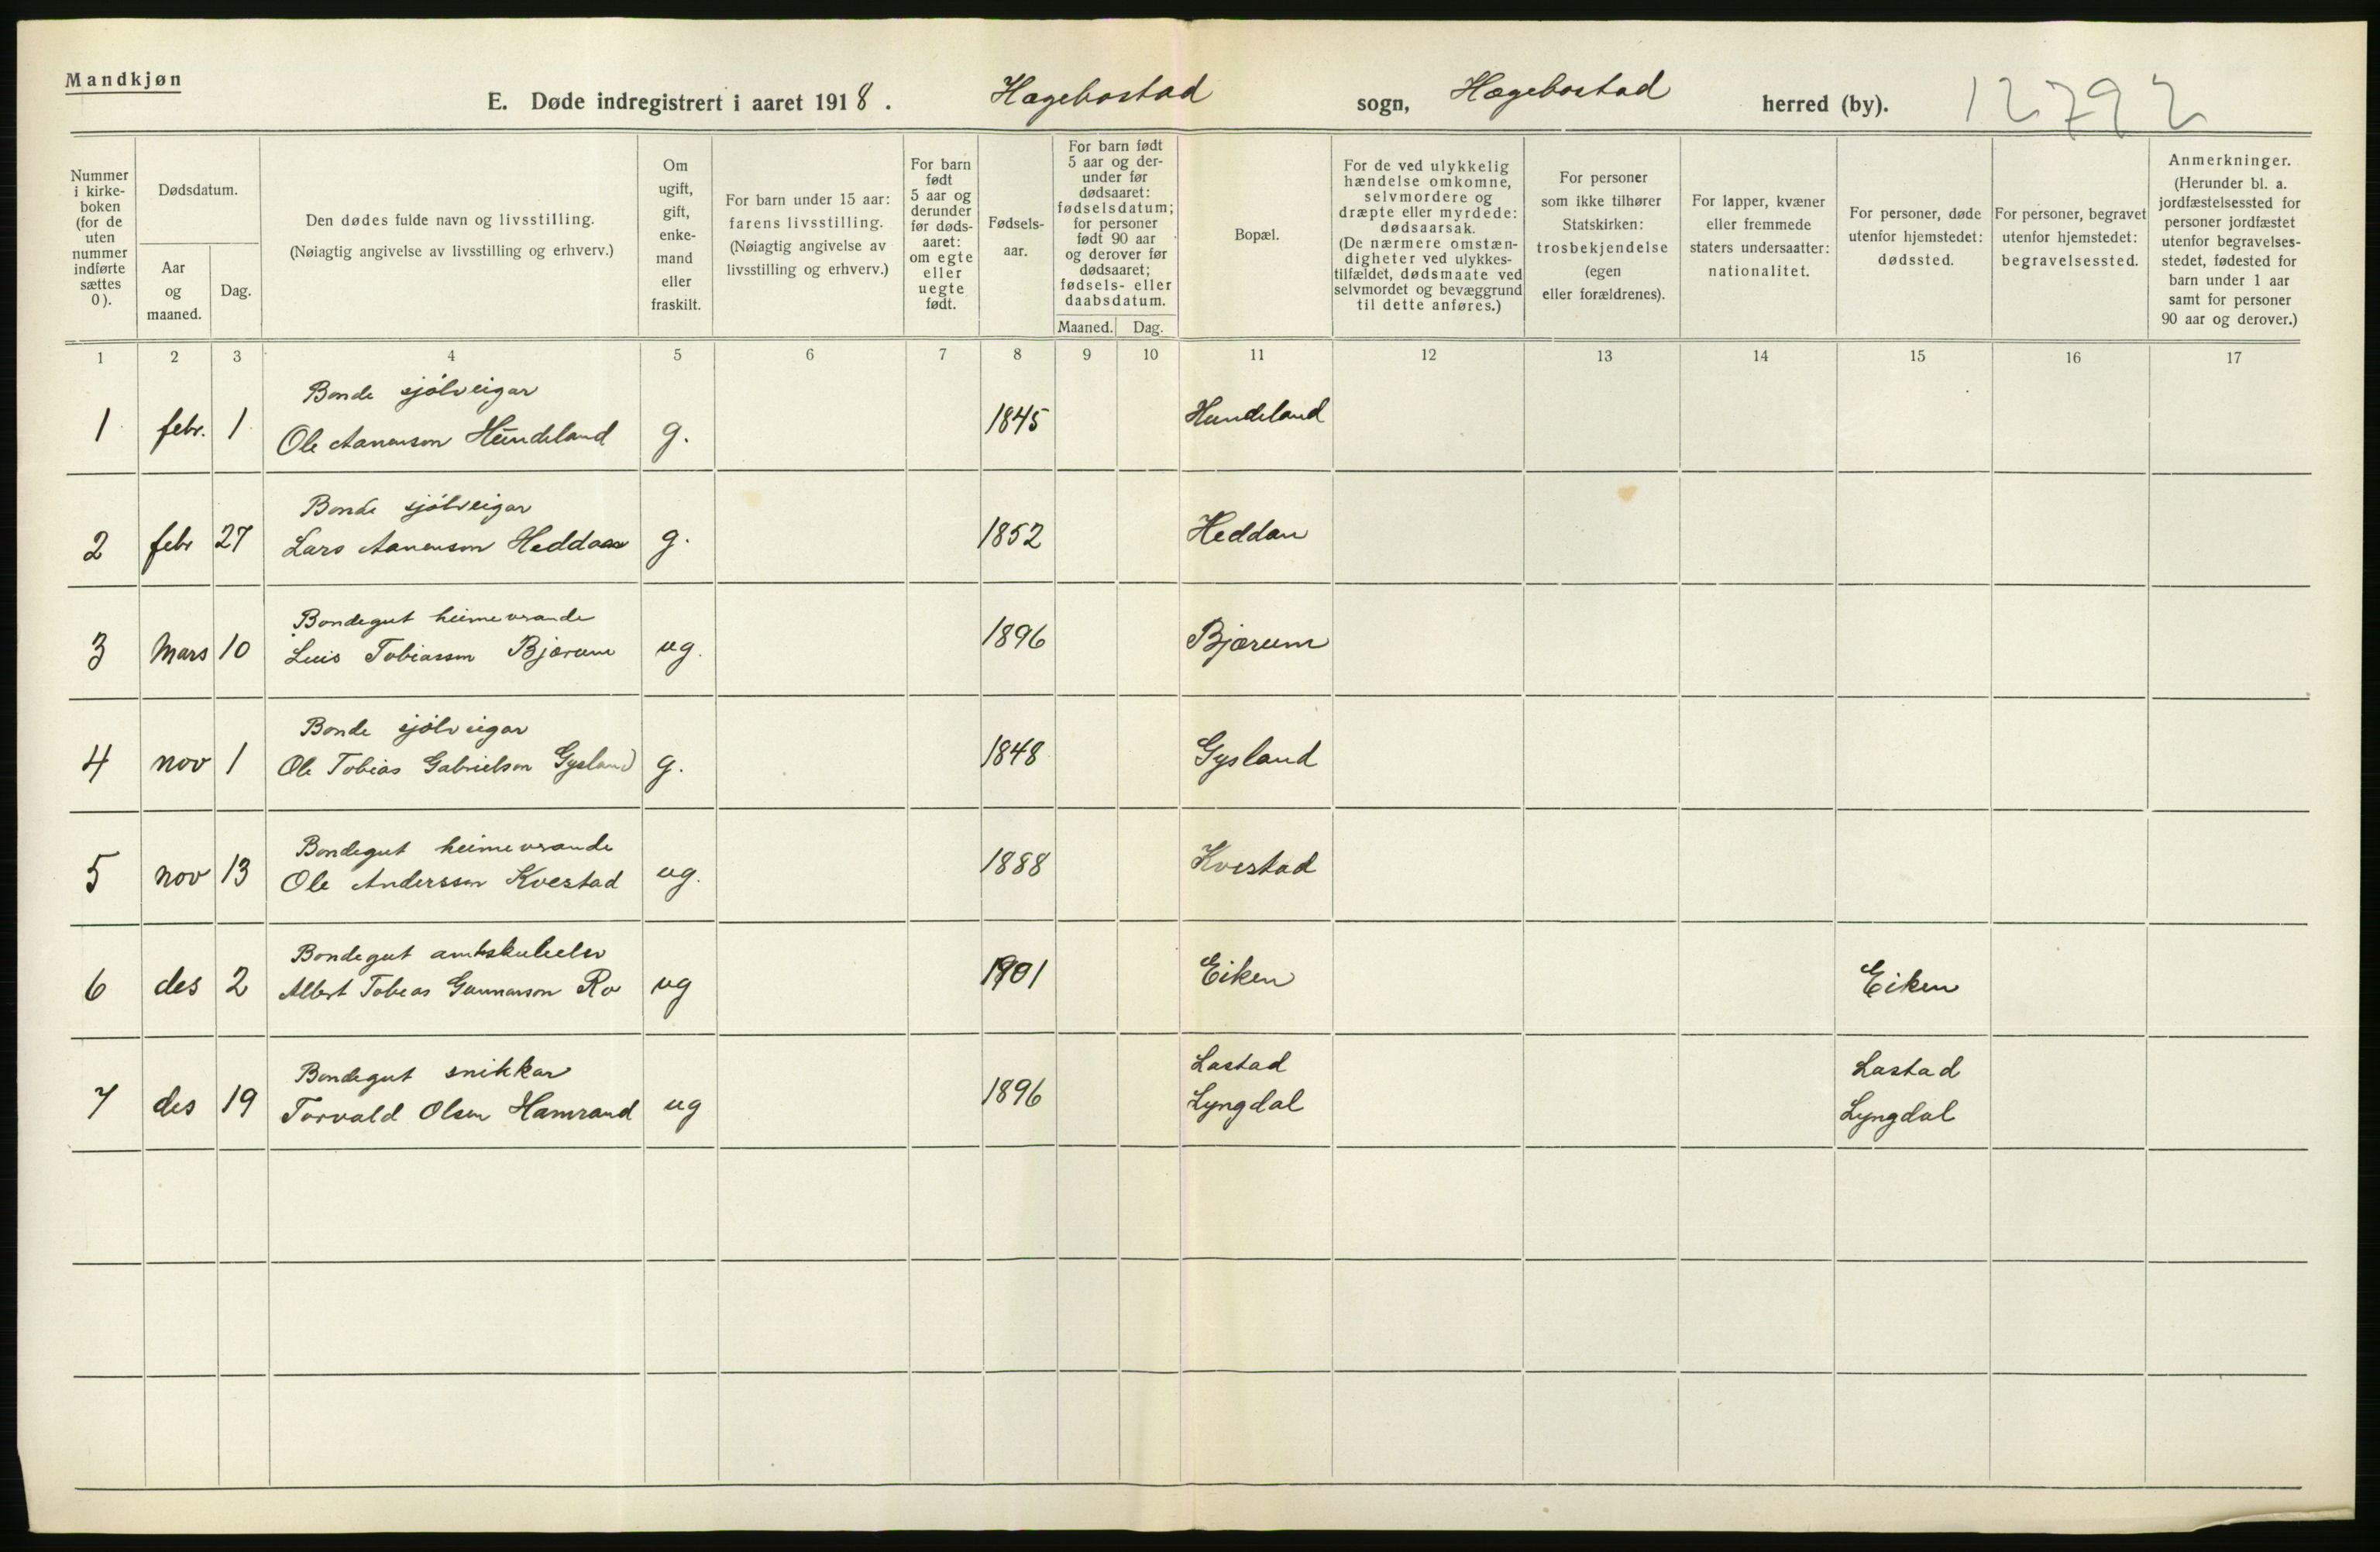 Mandkjøn
E. Døde indregistrert i aaret 1918. Hægebostad sogn, Hægebostad herred (by). 12792
Nummer i kirke-boken (for de uten nummer indførte sættes 0).
Dødsdatum.
Aar og maaned.
Dag.
Den dødes fulde navn og livsstilling.
(Nøiagtig angivelse av livsstilling og erhverv.)
Om ugift, gift, enke-mand eller fraskilt.
For barn under 15 aar: farens livsstilling.
(Nøiagtig angivelse av livsstilling og erhverv.)
For barn født 5 aar og derunder før døds-aaret: om egte eller uegte født.
Fødsels-aar.
For barn født 5 aar og der-under før dødsaaret: fødselsdatum; for personer født 90 aar og derover før dødsaaret; fødsels- eller daabsdatum.
Maaned. Dag.
Bopæl.
For de ved ulykkelig hændelse omkomne, selvmordere og dræpte eller myrdede: dødsaarsak.
(De nærmere omstæn-digheter ved ulykkes-tilfældet, dødsmaate ved selvmordet og bevæggrund til dette anføres.)
For personer som ikke tilhører Statskirken: trosbekjendelse (egen eller forældrenes).
For lapper, kvæner eller fremmede staters undersaatter: nationalitet.
For personer, døde utenfor hjemstedet: dødssted.
For personer, begravet utenfor hjemstedet: begravelsessted.
Anmerkninger.
(Herunder bl. a. jordfæstelsessted for personer jordfæstet utenfor begravelses-stedet, fødested for barn under 1 aar samt for personer 90 aar og derover.)
1 2 3 4 5 6 7 8 9 10 11 12 13 14 15 16 17
Bonde sjølveigar
1 febr. 1 Ole Aanenson Hundeland g. 1845 Hundeland
Bonde sjølveigar
2 febr 27 Lars Aanenson Heddan g. 1852 Heddan
Bondegut heimeverande
3 Mars 10 Tobiasson Bjærum ug. 1896 Bjærum
Bonde sjølveigar
4 nov 1 Ole Tobias Gabrielson Gysland g. 1848 Gysland
Bondegut heimeverande
5 nov 13 Ole Andersson Kvestad ug. 1888 Kvestad
Bondegut amtskuleelev
6 des 2 Albert Tobias Gunnarson Ro ug 1901 Eiken Eiken
Bondegut snikkar Lastad Lastad
7 des 19 Torvald Olsen Hamrand ug 1896 Lyngdal Lyngdal